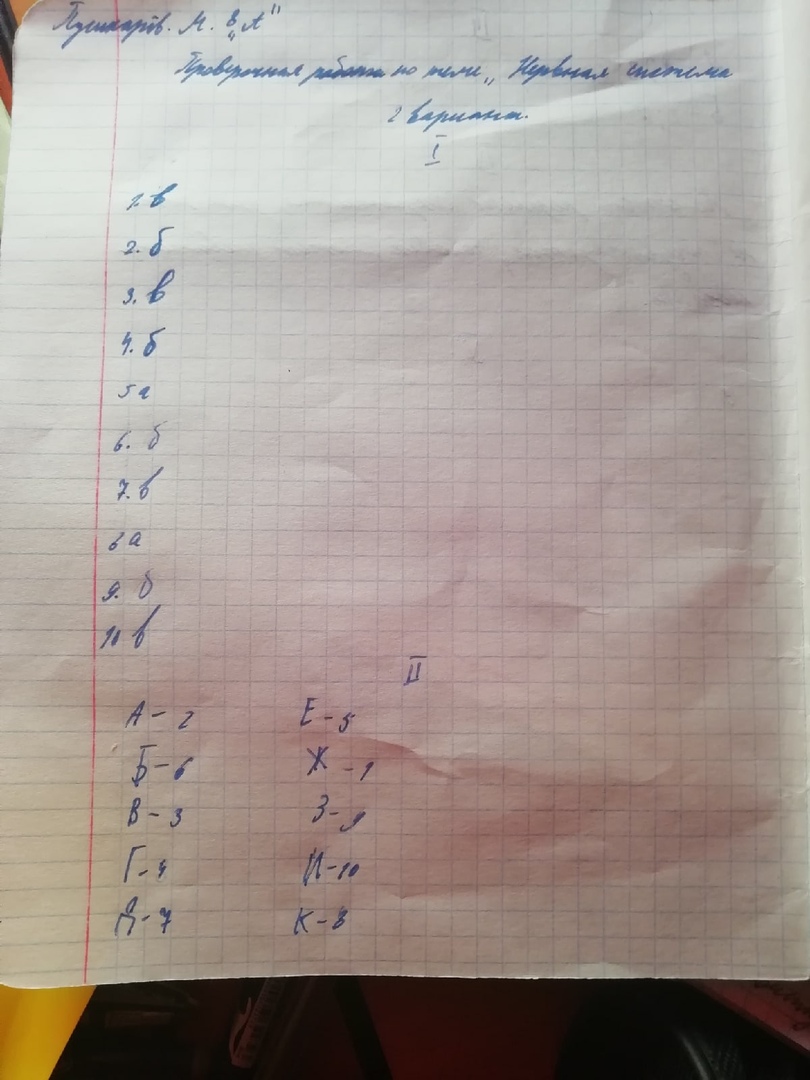 Пушкарів. М. 8 "А"
Проверочная работа по теме „ Нервная система
2 вариант.
I
1. в
2. б
3. в
4. б
5 а
6. б
7. в
8 а
9. б
10 в
II
А - 2 Е - 5
Б - 6 Ж - 1
В - 3 З - 9
Г - 4 И - 10
Д - 7 К - 8